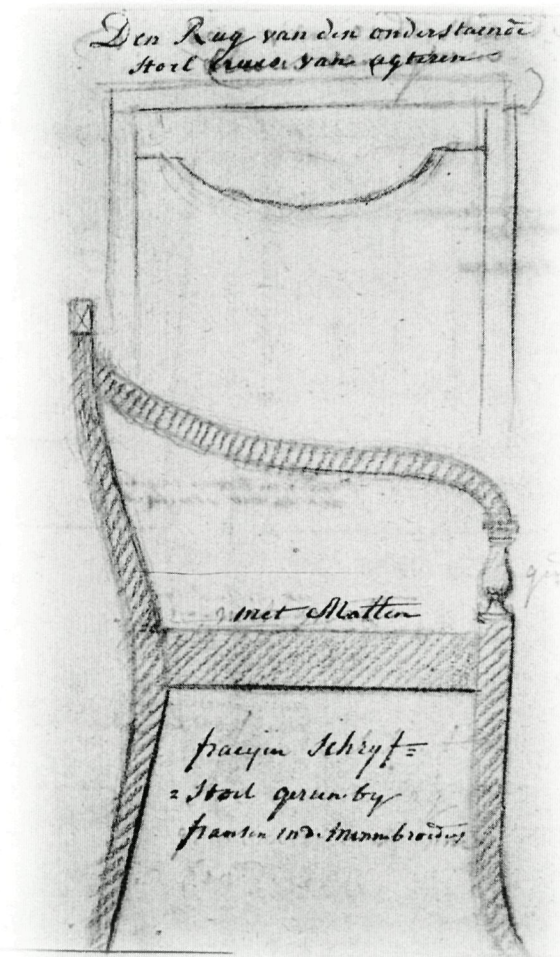 Den Rug van den onderstaende
stoel van agteren
met Matten
fraeyen schryf=
=stoel gesien by
fransen in de